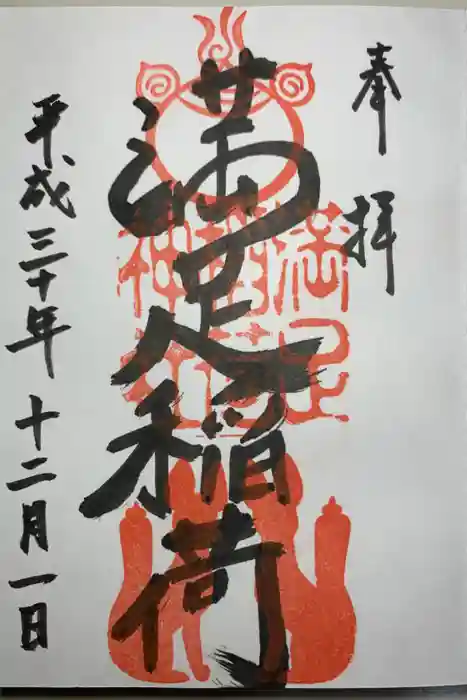 奉拝
満足稲荷
満足
稲荷
神社
平成三十年十二月一日